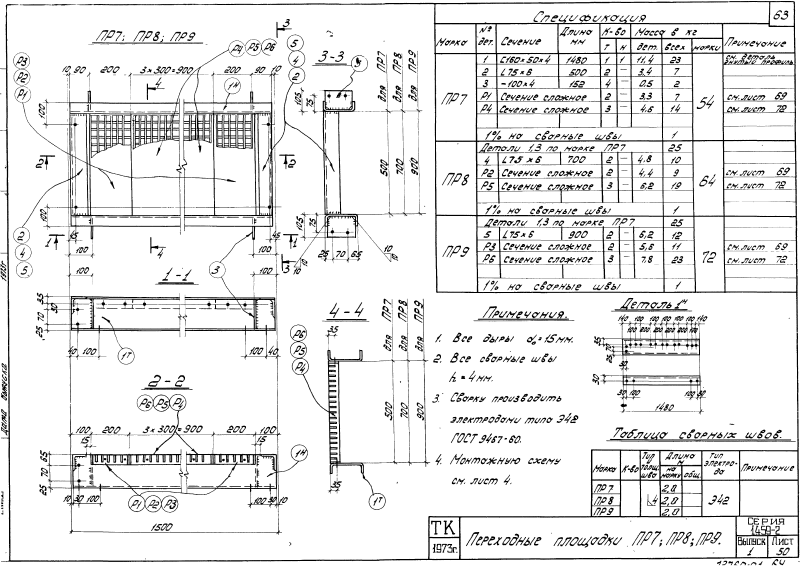 63
Спецификация
Марка
№ дет.
Сечение
Длина мм
К-во
т н
Масса в кг
дет. всех марки
Примечание
ПР7
1 С160×50×4 1480 1 1 11.4 23 см. деталь
2 L75×6 500 2 – 3,4 7
3 -100×4 152 4 – 0,5 2
Р1 Сечение сложное 2 – 3,3 7 см. лист 69
Р4 Сечение сложное 3 – 4,6 14 см. лист 72
1% на сварные швы 1
54
ПР8
Детали 1,3 по марке ПР7 25
4 L75×6 700 2 – 4,8 10
Р2 Сечение сложное 2 – 4,4 9 см. лист 69
Р5 Сечение сложное 3 – 6,2 19 см. лист 72
1% на сварные швы 1
64
ПР9
Детали 1,3 по марке ПР7 25
5 L75×6 900 2 – 6,2 12
Р3 Сечение сложное 2 – 5,6 11 см. лист 69
Р6 Сечение сложное 3 – 7,8 23 см. лист 72
1% на сварные швы 1
72
ПР7; ПР8; ПР9
Р4 Р5 Р6 5
4
2
Р3
Р2
Р1
10 90 200 3×300=900 200 90 10
1Н
100
2
4
5
45
100
100
45
3
3-3
для ПР7
для ПР8
для ПР9
105
75
500
700
900
105
75
25 70 65
10
10
1-1
35
30
70
25
40 100
100 40
1т
2-2
Р6 Р5 Р4
100 200 3×300=900 200 100
15
15
65
70
25
10 30 100
100 30 10
1Н
Р1 Р2 Р3
1500
4-4
35
Р6
Р5
Р4
для ПР7
для ПР8
для ПР9
500
700
900
35
1т
Примечания.
1. Все дыры d₀=15мм.
2. Все сварные швы
h=4мм.
3. Сварку производить
электродами типа Э42
ГОСТ 9467-60.
4. Монтажную схему
см. лист 4.
Деталь 1тн
140 100 100 100 100 100 140
200 200 200 200
30
100
100
1480
Таблица сварных швов.
Марка
К-во
Тип толщ. шва
Длина
на марку
общ.
Тип электрода
Примечание
ПР7 2,0
ПР8 4 2,0 Э42
ПР9 2,0
ТК
1973г.
Переходные площадки ПР7; ПР8; ПР9.
Серия
1.459-2
Выпуск 1
Лист 50